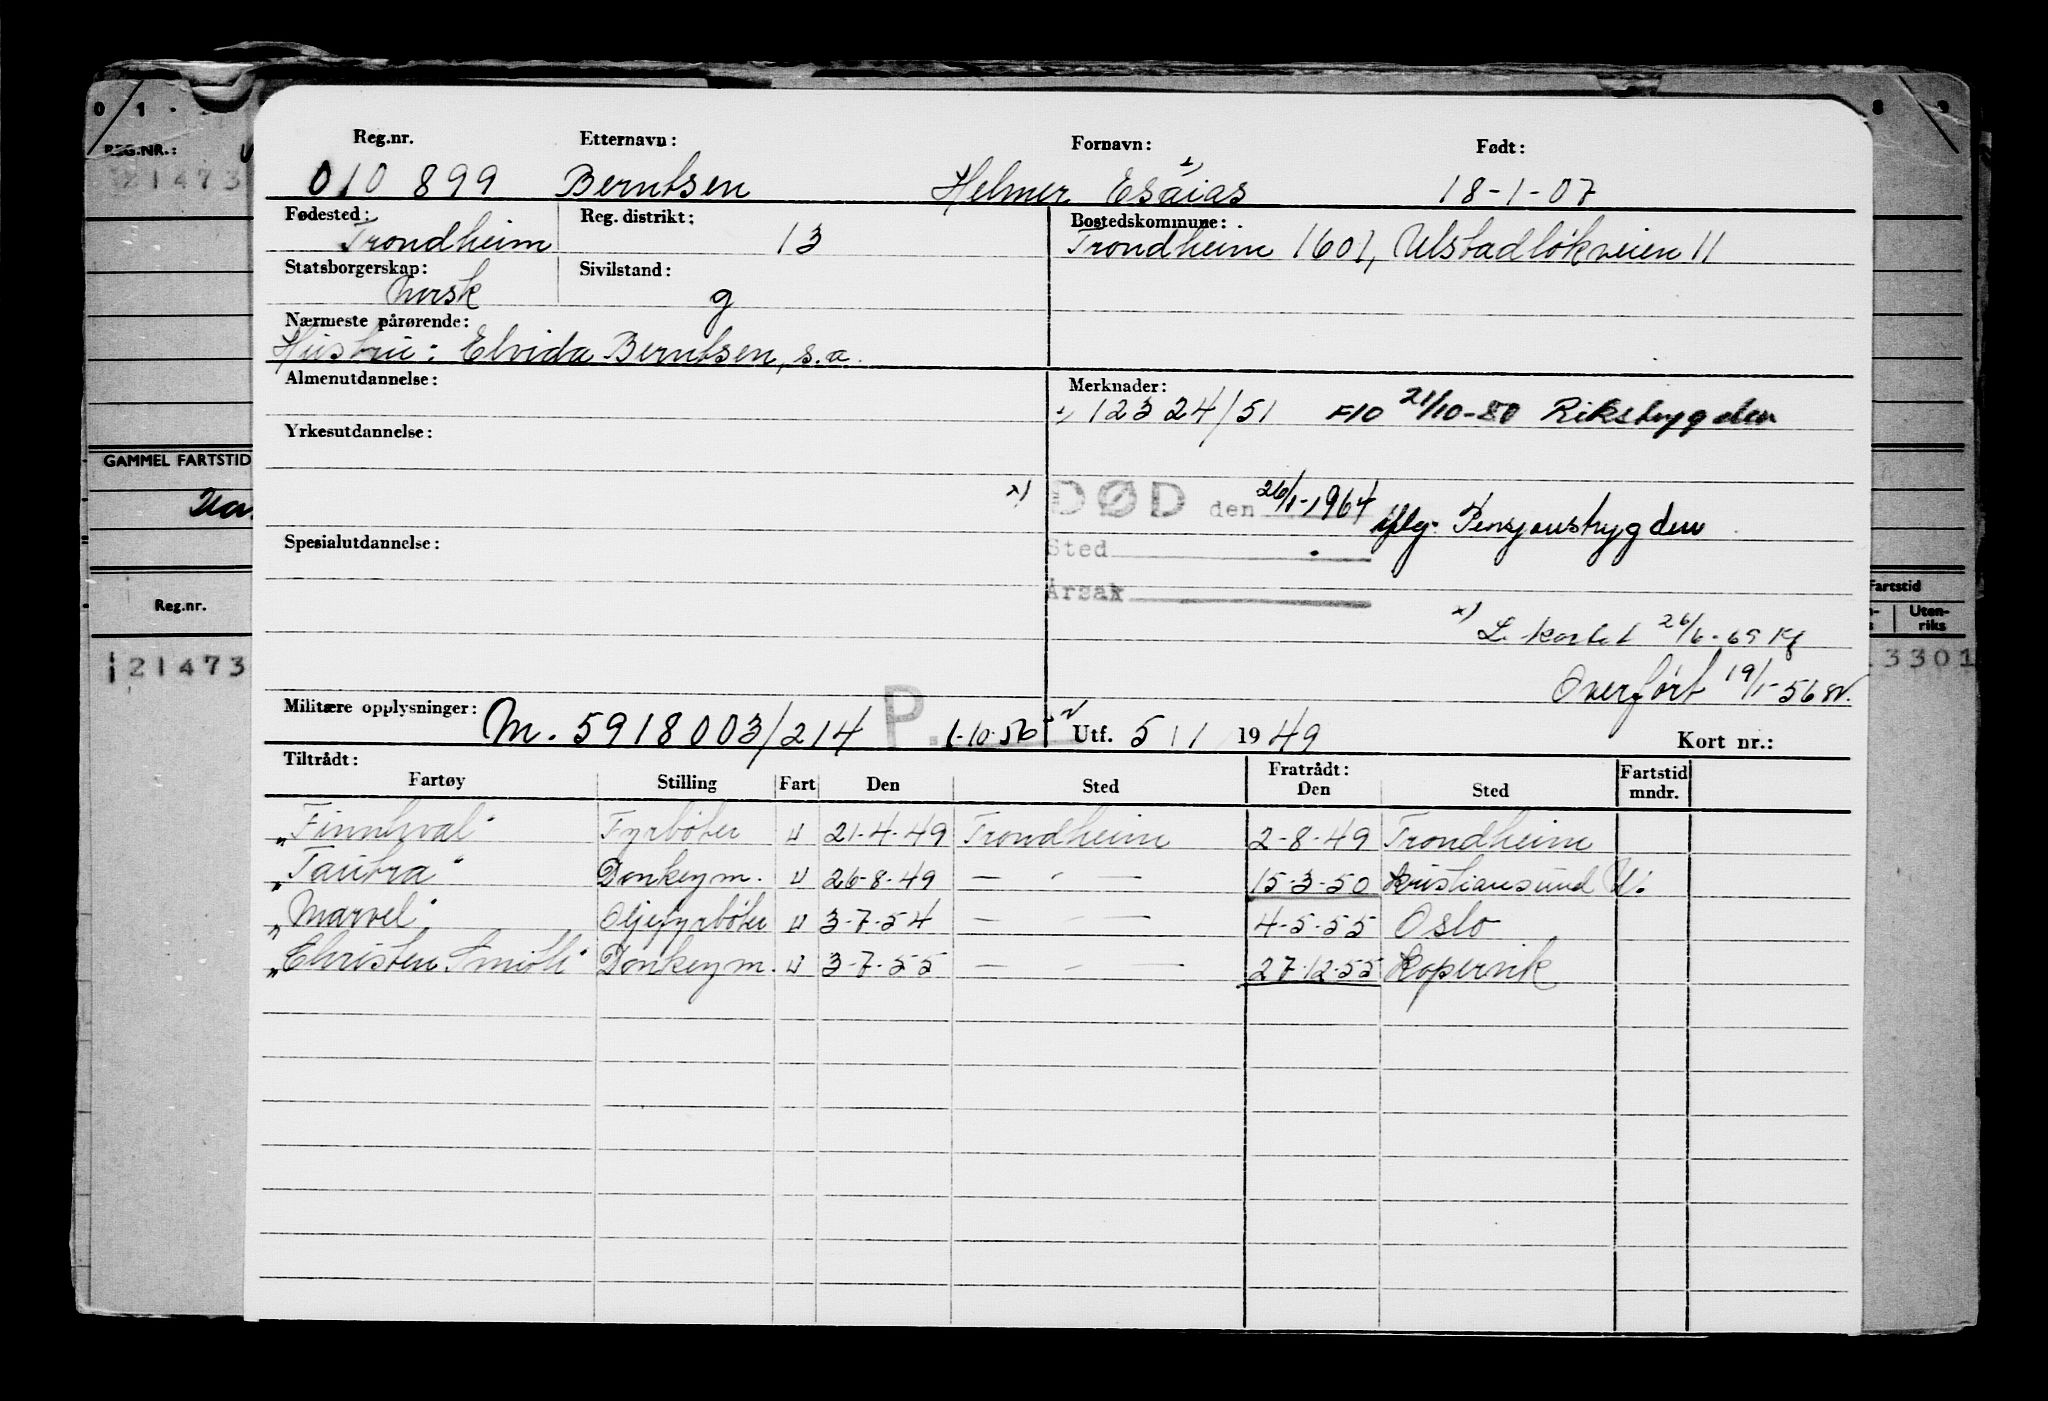 0 1
8 9
REG.NR.:
21473
Reg.nr. Etternavn: Fornavn: Født:
010 899 Berntsen Helmer Esaias 18-1-07
Fødested: Reg. distrikt: Bostedskommune:
Trondheim 13 Trondheim 1601, Ulstadløkveien 11
Statsborgerskap: Sivilstand:
norsk g
Nærmeste pårørende:
Hustru: Elvida Berntsen, s.a.
Almenutdannelse: Merknader:
12324/51 F10 21/10-80 Rikstrygden
Yrkesutdannelse:
GAMMEL FARTSTID
x) DØD den 26/1-1964 iflg. Pensjonstrygden
Spesialutdannelse: Sted
Årsak
Reg.nr.
Fartstid
Uten-
riks
x) L. kortet 26/6-69
21473
3301
Overført 19/1-56
Militære opplysninger: M. 5918003/214 P. 1-10-56 Utf. 5/1 1949 Kort nr.:
Tiltrådt: Fratrådt: Fartstid
Fartøy Stilling Fart Den Sted Den Sted mndr.
„Finnhval" Fyrbøter U 21-4-49 Trondheim 2-8-49 Trondheim
„Tautra" Donkeym. U 26-8-49 — " — 15-3-50 Kristiansund N.
„Marvel" Oljefyrbøter U 3-7-54 — " — 4-5-55 Oslo
„Christen Smith" Donkeym. U 3-7-55 — " — 27-12-55 Kopervik